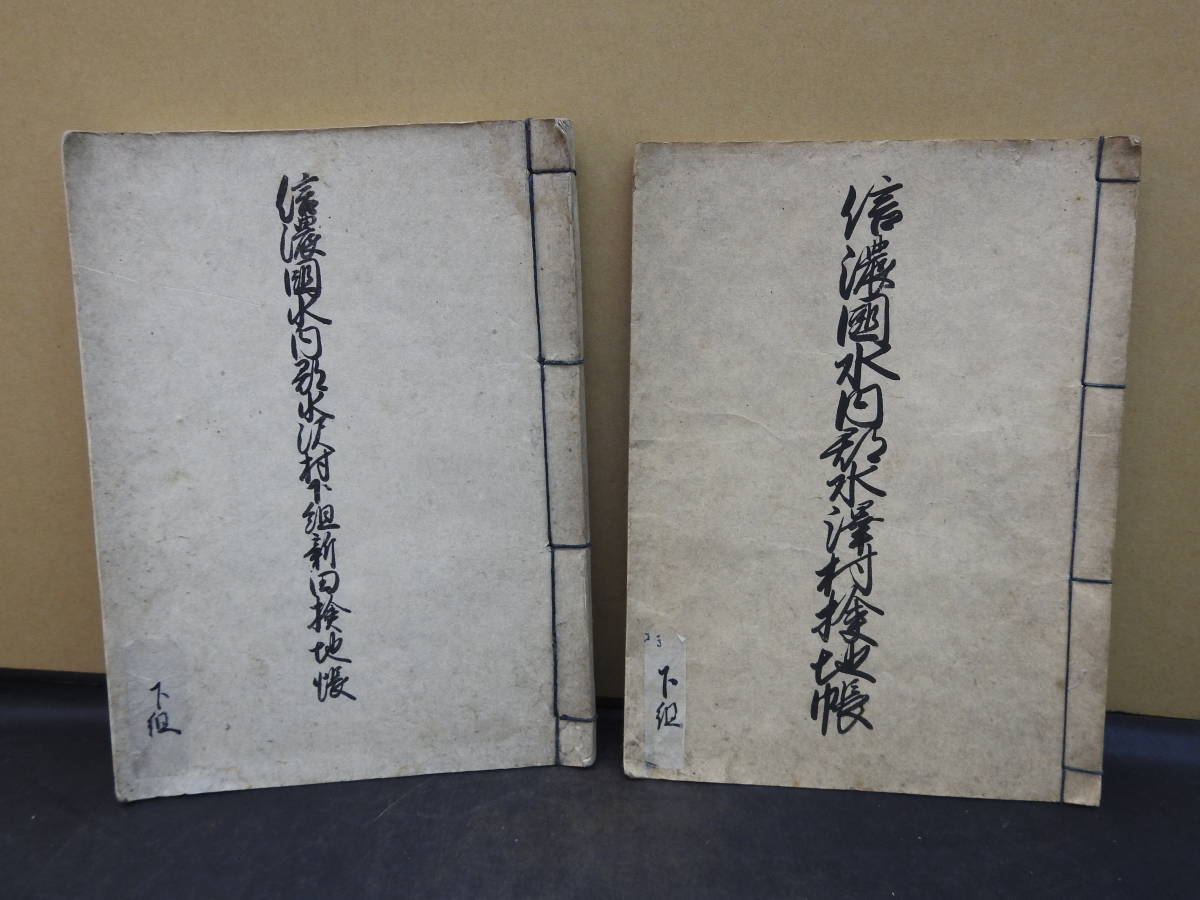 信濃國水内郡水澤村検地帳
下組
信濃國水内郡水沢村下組新田検地帳
下組